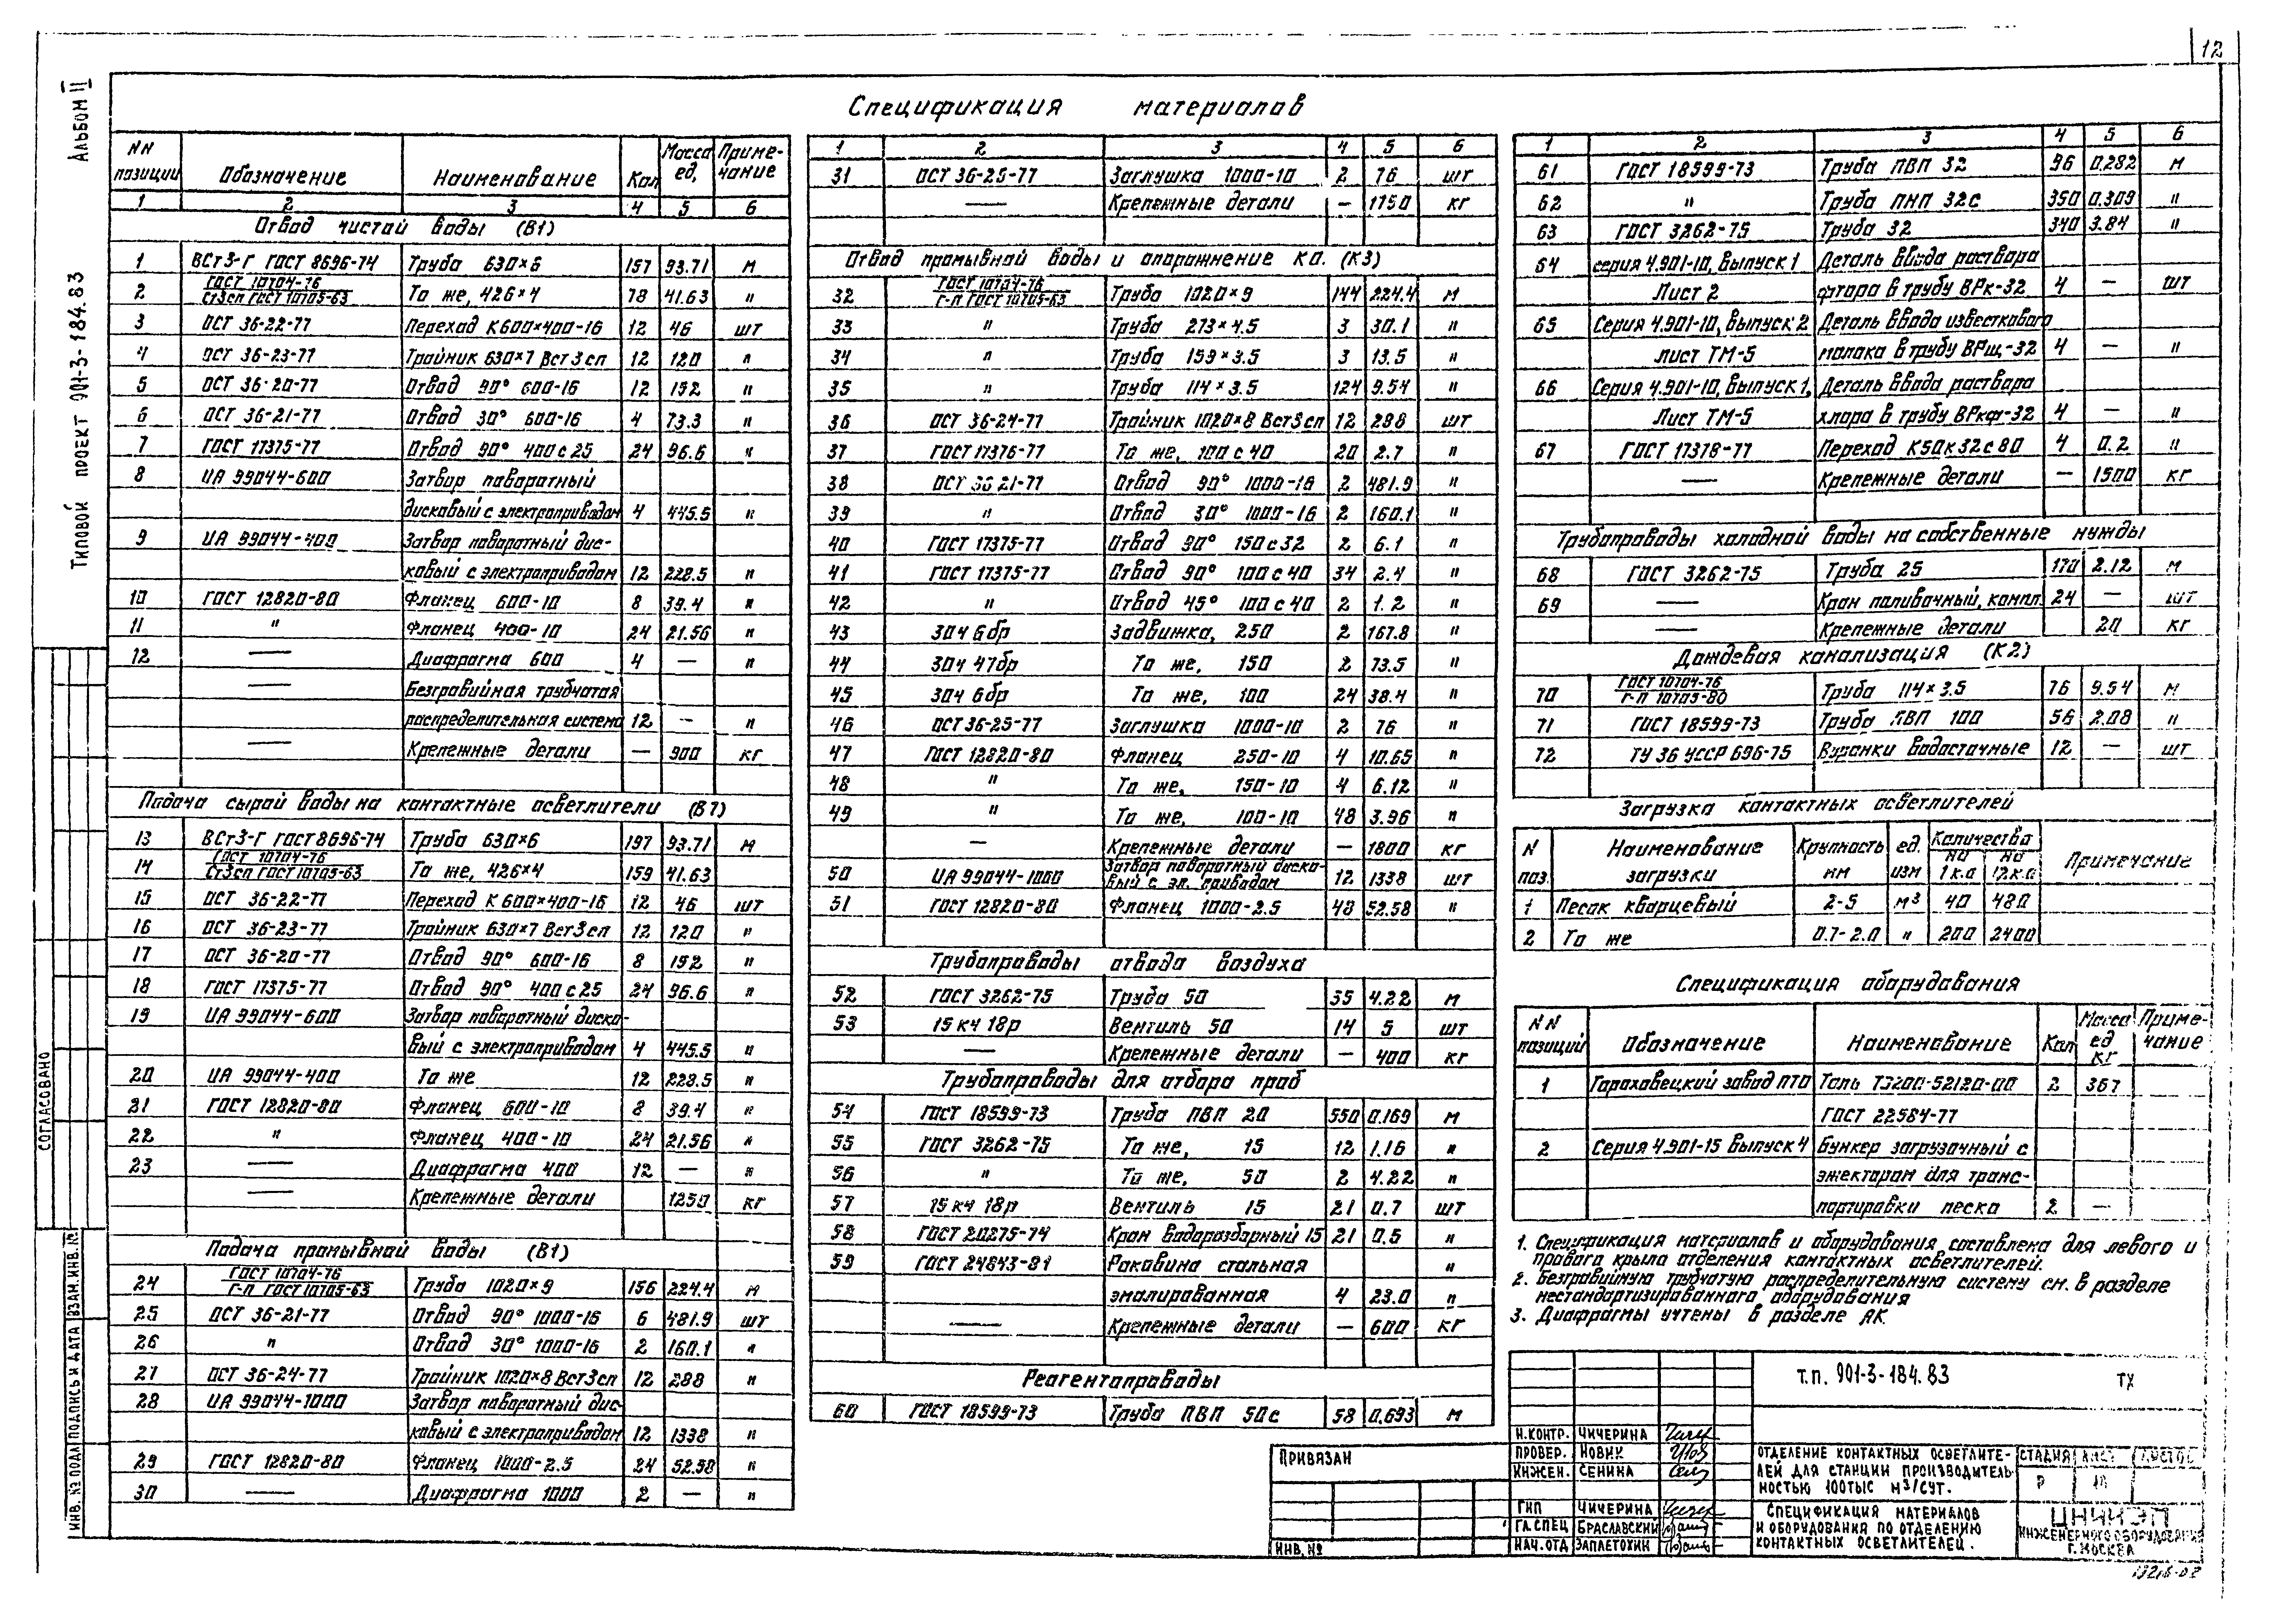 12
Альбом II
Типовой проект 901-3-184.83
Спецификация материалов
NN позиции | Обозначение | Наименование | Кол | Масса ед, | Примечание
1 | 2 | 3 | 4 | 5 | 6
Отвод чистой воды (В1)
1 | ВСт3-Г ГОСТ 8696-74 | Труба 630×6 | 157 | 93.71 | м
2 | ГОСТ 10704-76 / Ст3сп ГОСТ 10705-63 | То же, 426×4 | 78 | 41.63 | "
3 | ОСТ 36-22-77 | Переход К600×400-16 | 12 | 46 | шт
4 | ОСТ 36-23-77 | Тройник 630×7 Вст3сп | 12 | 120 | "
5 | ОСТ 36-20-77 | Отвод 90° 600-16 | 12 | 152 | "
6 | ОСТ 36-21-77 | Отвод 30° 600-16 | 4 | 73.3 | "
7 | ГОСТ 17375-77 | Отвод 90° 400 с 25 | 24 | 96.6 | "
8 | ИА 99044-600 | Затвор поворотный
дисковый с электроприводом | 4 | 445.5 | "
9 | ИА 99044-400 | Затвор поворотный дис-
ковый с электроприводом | 12 | 228.5 | "
10 | ГОСТ 12820-80 | Фланец 600-10 | 8 | 39.4 | "
11 | " | Фланец 400-10 | 24 | 21.56 | "
12 | — | Диафрагма 600 | 4 | — | "
— | Безгравийная трубчатая
распределительная система | 12 | — | "
— | Крепежные детали | — | 900 | кг
Подача сырой воды на контактные осветлители (В7)
13 | ВСт3-Г ГОСТ 8696-74 | Труба 630×6 | 197 | 93.71 | м
14 | ГОСТ 10704-76 / Ст3сп ГОСТ 10705-63 | То же, 426×4 | 159 | 41.63
15 | ОСТ 36-22-77 | Переход К 600×400-16 | 12 | 46 | шт
16 | ОСТ 36-23-77 | Тройник 630×7 Вст3сп | 12 | 120 | "
17 | ОСТ 36-20-77 | Отвод 90° 600-16 | 8 | 152 | "
18 | ГОСТ 17375-77 | Отвод 90° 400 с 25 | 24 | 96.6 | "
19 | ИА 99044-600 | Затвор поворотный диско-
вый с электроприводом | 4 | 445.5 | "
20 | ИА 99044-400 | То же | 12 | 228.5 | "
21 | ГОСТ 12820-80 | Фланец 600-10 | 8 | 39.4 | "
22 | " | Фланец 400-10 | 24 | 21.56 | "
23 | — | Диафрагма 400 | 12 | — | "
— | Крепежные детали | 1250 | кг
Подача промывной воды (В1)
24 | ГОСТ 10704-76 / Г-П ГОСТ 10705-63 | Труба 1020×9 | 156 | 224.4 | м
25 | ОСТ 36-21-77 | Отвод 90° 1000-16 | 6 | 481.9 | шт
26 | " | Отвод 30° 1000-16 | 2 | 160.1 | "
27 | ОСТ 36-24-77 | Тройник 1020×8 Вст3сп | 12 | 288 | "
28 | ИА 99044-1000 | Затвор поворотный дис-
ковый с электроприводом | 12 | 1338 | "
29 | ГОСТ 12820-80 | Фланец 1000-2.5 | 24 | 52.58 | "
30 | — | Диафрагма 1000 | 2 | — | "
1 | 2 | 3 | 4 | 5 | 6
31 | ОСТ 36-25-77 | Заглушка 1000-10 | 2 | 76 | шт
— | Крепежные детали | — | 1750 | кг
Отвод промывной воды и опорожнение КО. (К3)
32 | ГОСТ 10704-76 / Г-П ГОСТ 10705-63 | Труба 1020×9 | 144 | 224.4 | м
33 | " | Труба 273×4.5 | 3 | 30.1 | "
34 | " | Труба 159×3.5 | 3 | 13.5 | "
35 | " | Труба 114×3.5 | 124 | 9.54 | "
36 | ОСТ 36-24-77 | Тройник 1020×8 Вст3сп | 12 | 288 | шт
37 | ГОСТ 17376-77 | То же, 100 с 40 | 20 | 2.7 | "
38 | ОСТ 36 21-77 | Отвод 90° 1000-16 | 2 | 481.9 | "
39 | " | Отвод 30° 1000-16 | 2 | 160.1 | "
40 | ГОСТ 17375-77 | Отвод 90° 150 с 32 | 2 | 6.1 | "
41 | ГОСТ 17375-77 | Отвод 90° 100 с 40 | 34 | 2.4 | "
42 | " | Отвод 45° 100 с 40 | 2 | 1.2 | "
43 | 30ч 6бр | Задвижка, 250 | 2 | 167.8 | "
44 | 30ч 47бр | То же, 150 | 2 | 73.5 | "
45 | 30ч 6бр | То же, 100 | 24 | 38.4 | "
46 | ОСТ 36-25-77 | Заглушка 1000-10 | 2 | 76 | "
47 | ГОСТ 12820-80 | Фланец 250-10 | 4 | 10.65 | "
48 | " | То же, 150-10 | 4 | 6.12 | "
49 | " | То же, 100-10 | 48 | 3.96 | "
— | Крепежные детали | — | 1800 | кг
50 | ИА 99044-1000 | Затвор поворотный диско-
вый с эл. приводом | 12 | 1338 | шт
51 | ГОСТ 12820-80 | Фланец 1000-2.5 | 48 | 52.58 | "
Трубопроводы отвода воздуха
52 | ГОСТ 3262-75 | Труба 50 | 35 | 4.22 | м
53 | 15 кч 18р | Вентиль 50 | 14 | 5 | шт
— | Крепежные детали | — | 400 | кг
Трубопроводы для отбора проб
54 | ГОСТ 18599-73 | Труба ПВП 20 | 550 | 0.169 | м
55 | ГОСТ 3262-75 | То же, 15 | 12 | 1.16 | "
56 | " | То же, 50 | 2 | 4.22 | "
57 | 15 кч 18р | Вентиль 15 | 21 | 0.7 | шт
58 | ГОСТ 20275-74 | Кран водоразборный 15 | 21 | 0.5 | "
59 | ГОСТ 24843-81 | Раковина стальная | "
эмалированная | 4 | 23.0 | "
— | Крепежные детали | — | 600 | кг
Реагентопроводы
60 | ГОСТ 18599-73 | Труба ПВП 50с | 58 | 0,693 | м
1 | 2 | 3 | 4 | 5 | 6
61 | ГОСТ 18599-73 | Труба ПВП 32 | 96 | 0.282 | м
62 | " | Труба ПНП 32с | 350 | 0.309 | "
63 | ГОСТ 3262-75 | Труба 32 | 340 | 3.84 | "
64 | серия 4.901-10, выпуск 1 | Деталь ввода раствора
Лист 2 | фтора в трубу ВРк-32 | 4 | — | шт
65 | Серия 4.901-10, выпуск 2 | Деталь ввода известкового
лист ТМ-5 | молока в трубу ВРщ-32 | 4 | — | "
66 | Серия 4.901-10, выпуск 1, | Деталь ввода раствора
Лист ТМ-5 | хлора в трубу ВРкф-32 | 4 | — | "
67 | ГОСТ 17378-77 | Переход К50к32с80 | 4 | 0.2 | "
— | Крепежные детали | — | 1500 | кг
Трубопроводы холодной воды на собственные нужды
68 | ГОСТ 3262-75 | Труба 25 | 170 | 2.12 | м
69 | — | Кран поливочный, компл. | 24 | — | шт
— | Крепежные детали | 20 | кг
Дождевая канализация (К2)
70 | ГОСТ 10704-76 / Г-П 10705-80 | Труба 114×3.5 | 76 | 9.54 | м
71 | ГОСТ 18599-73 | Труба ПВП 100 | 56 | 2.08 | "
72 | ТУ 36 УССР 696-75 | Воронки водосточные | 12 | — | шт
Загрузка контактных осветлителей
N поз. | Наименование загрузки | Крупность мм | ед. изм | Количество на 1 к.о | на 12 к.о | Примечание
1 | Песок кварцевый | 2-5 | м³ | 40 | 480
2 | То же | 0.7-2.0 | " | 200 | 2400
Спецификация оборудования
NN позиций | Обозначение | Наименование | Кол | Масса ед кг | Примечание
1 | Гороховецкий завод ПТО | Таль Т3200-52120-00 | 2 | 367
ГОСТ 22584-77
2 | Серия 4.901-15 выпуск 4 | Бункер загрузочный с
эжектором для транс-
портировки песка | 2 | —
1. Спецификация материалов и оборудования составлена для левого и
правого крыла отделения контактных осветлителей.
2. Безгравийную трубчатую распределительную систему см. в разделе
нестандартизированного оборудования
3. Диафрагмы учтены в разделе АК
Т.П. 901-3-184.83 ТХ
Привязан
Инв. №
Н.контр. Чичерина
Провер. Новик
Инжен. Сенина
ГИП Чичерина
Гл.спец Браславский
Нач.отд Заплетохин
Отделение контактных осветлите-
лей для станции производитель-
ностью 100тыс м³/сут.
Стадия Лист Листов
Р
Спецификация материалов
и оборудования по отделению
контактных осветлителей.
ЦНИИЭП
инженерного оборудования
г. Москва
Согласовано
Взам. инв. №
Подпись и дата
Инв. № подл